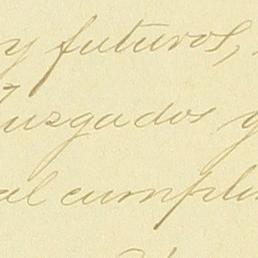 y futuros,
Juzgados y
al cumpli